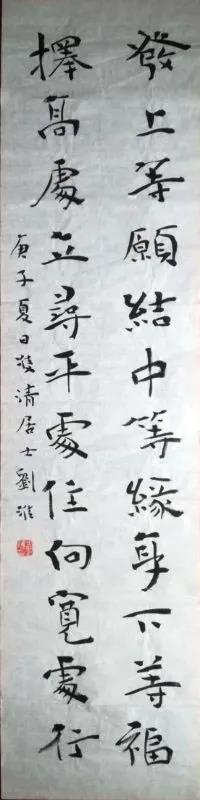 發上等願結中等緣享下等福
擇高處立尋平處住向寬處行
庚子夏日清居士劉